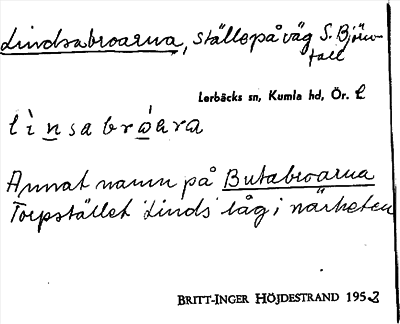 Lindsabroarna, ställe på väg S. Björn-
fall
Lerbäcks sn, Kumla hd, Ör. l.
lìnsabrώara
Annat namn på Butabroarna
Torpstället 'Linds' låg i närheten
BRITT-INGER HÖJDESTRAND 1952